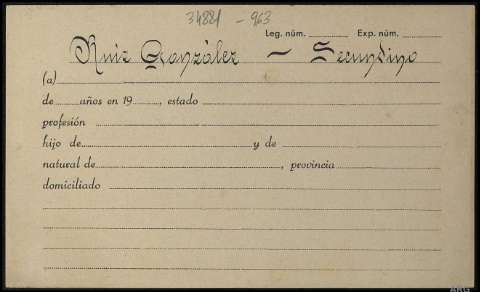 34881 - 963
Leg. núm. Exp. núm.
Ruiz González — Secundino
(a)
de años en 19, estado
profesión
hijo de y de
natural de, provincia
domiciliado
ARG